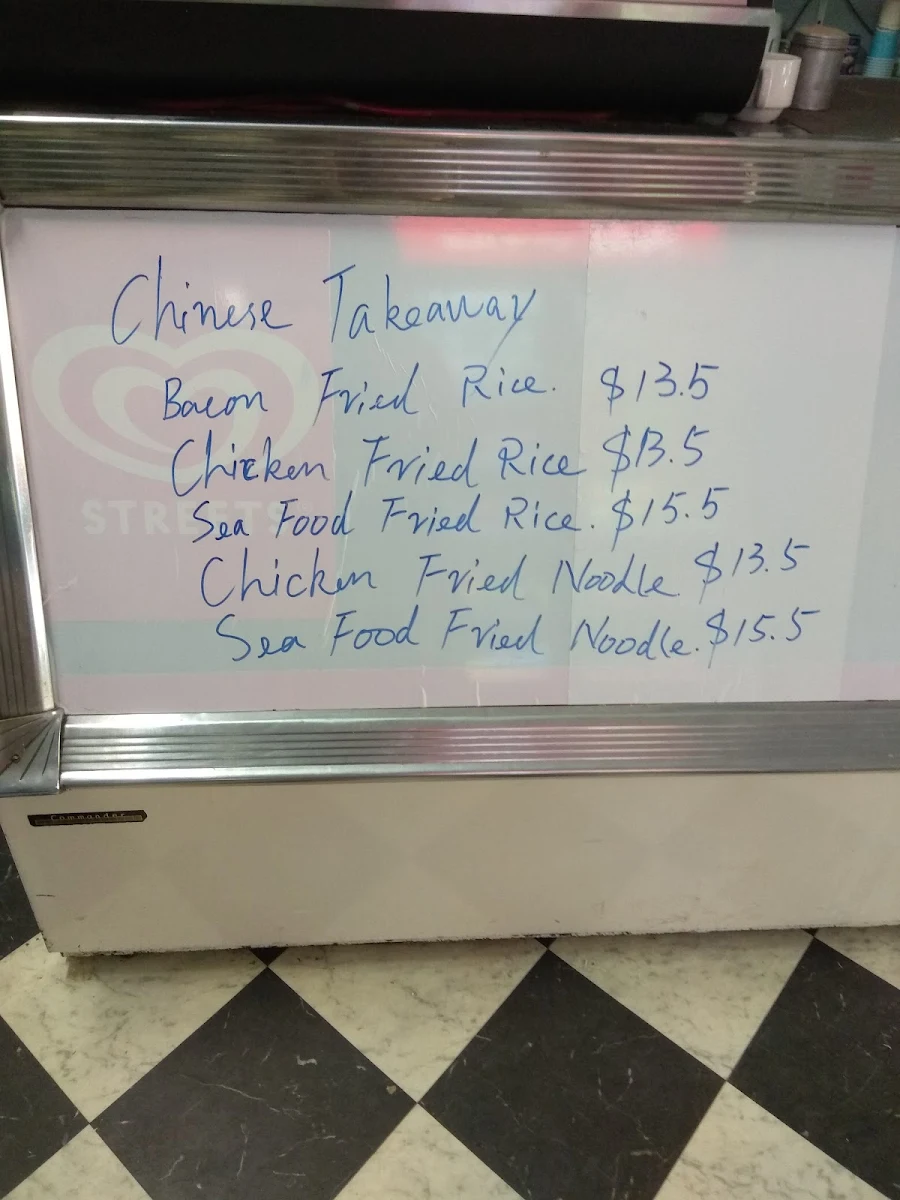 Chinese Takeaway
Bacon Fried Rice. $13.5
Chicken Fried Rice $13.5
STREETS
Sea Food Fried Rice. $15.5
Chicken Fried Noodle $13.5
Sea Food Fried Noodle. $15.5
Commander